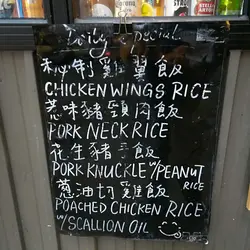 Daily Special
秘制雞翼飯
CHICKEN WINGS RICE
惹味豬頸肉飯
PORK NECK RICE
花生豬手飯
PORK KNUCKLE W/PEANUT
RICE
蔥油切雞飯
POACHED CHICKEN RICE
W/ SCALLION OIL